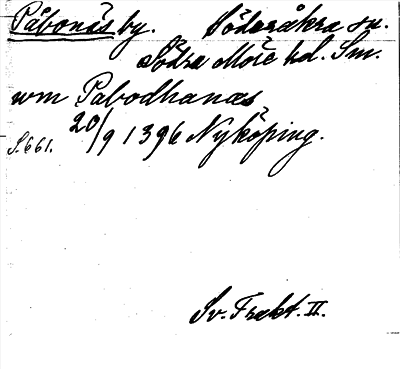 Påbonäs by. Söderåkra sn.
Södra Möre hd. Sm.
um Pabodhanæs
20/9 1396 Nyköping.
S. 661.
Sv. Trakt. II.